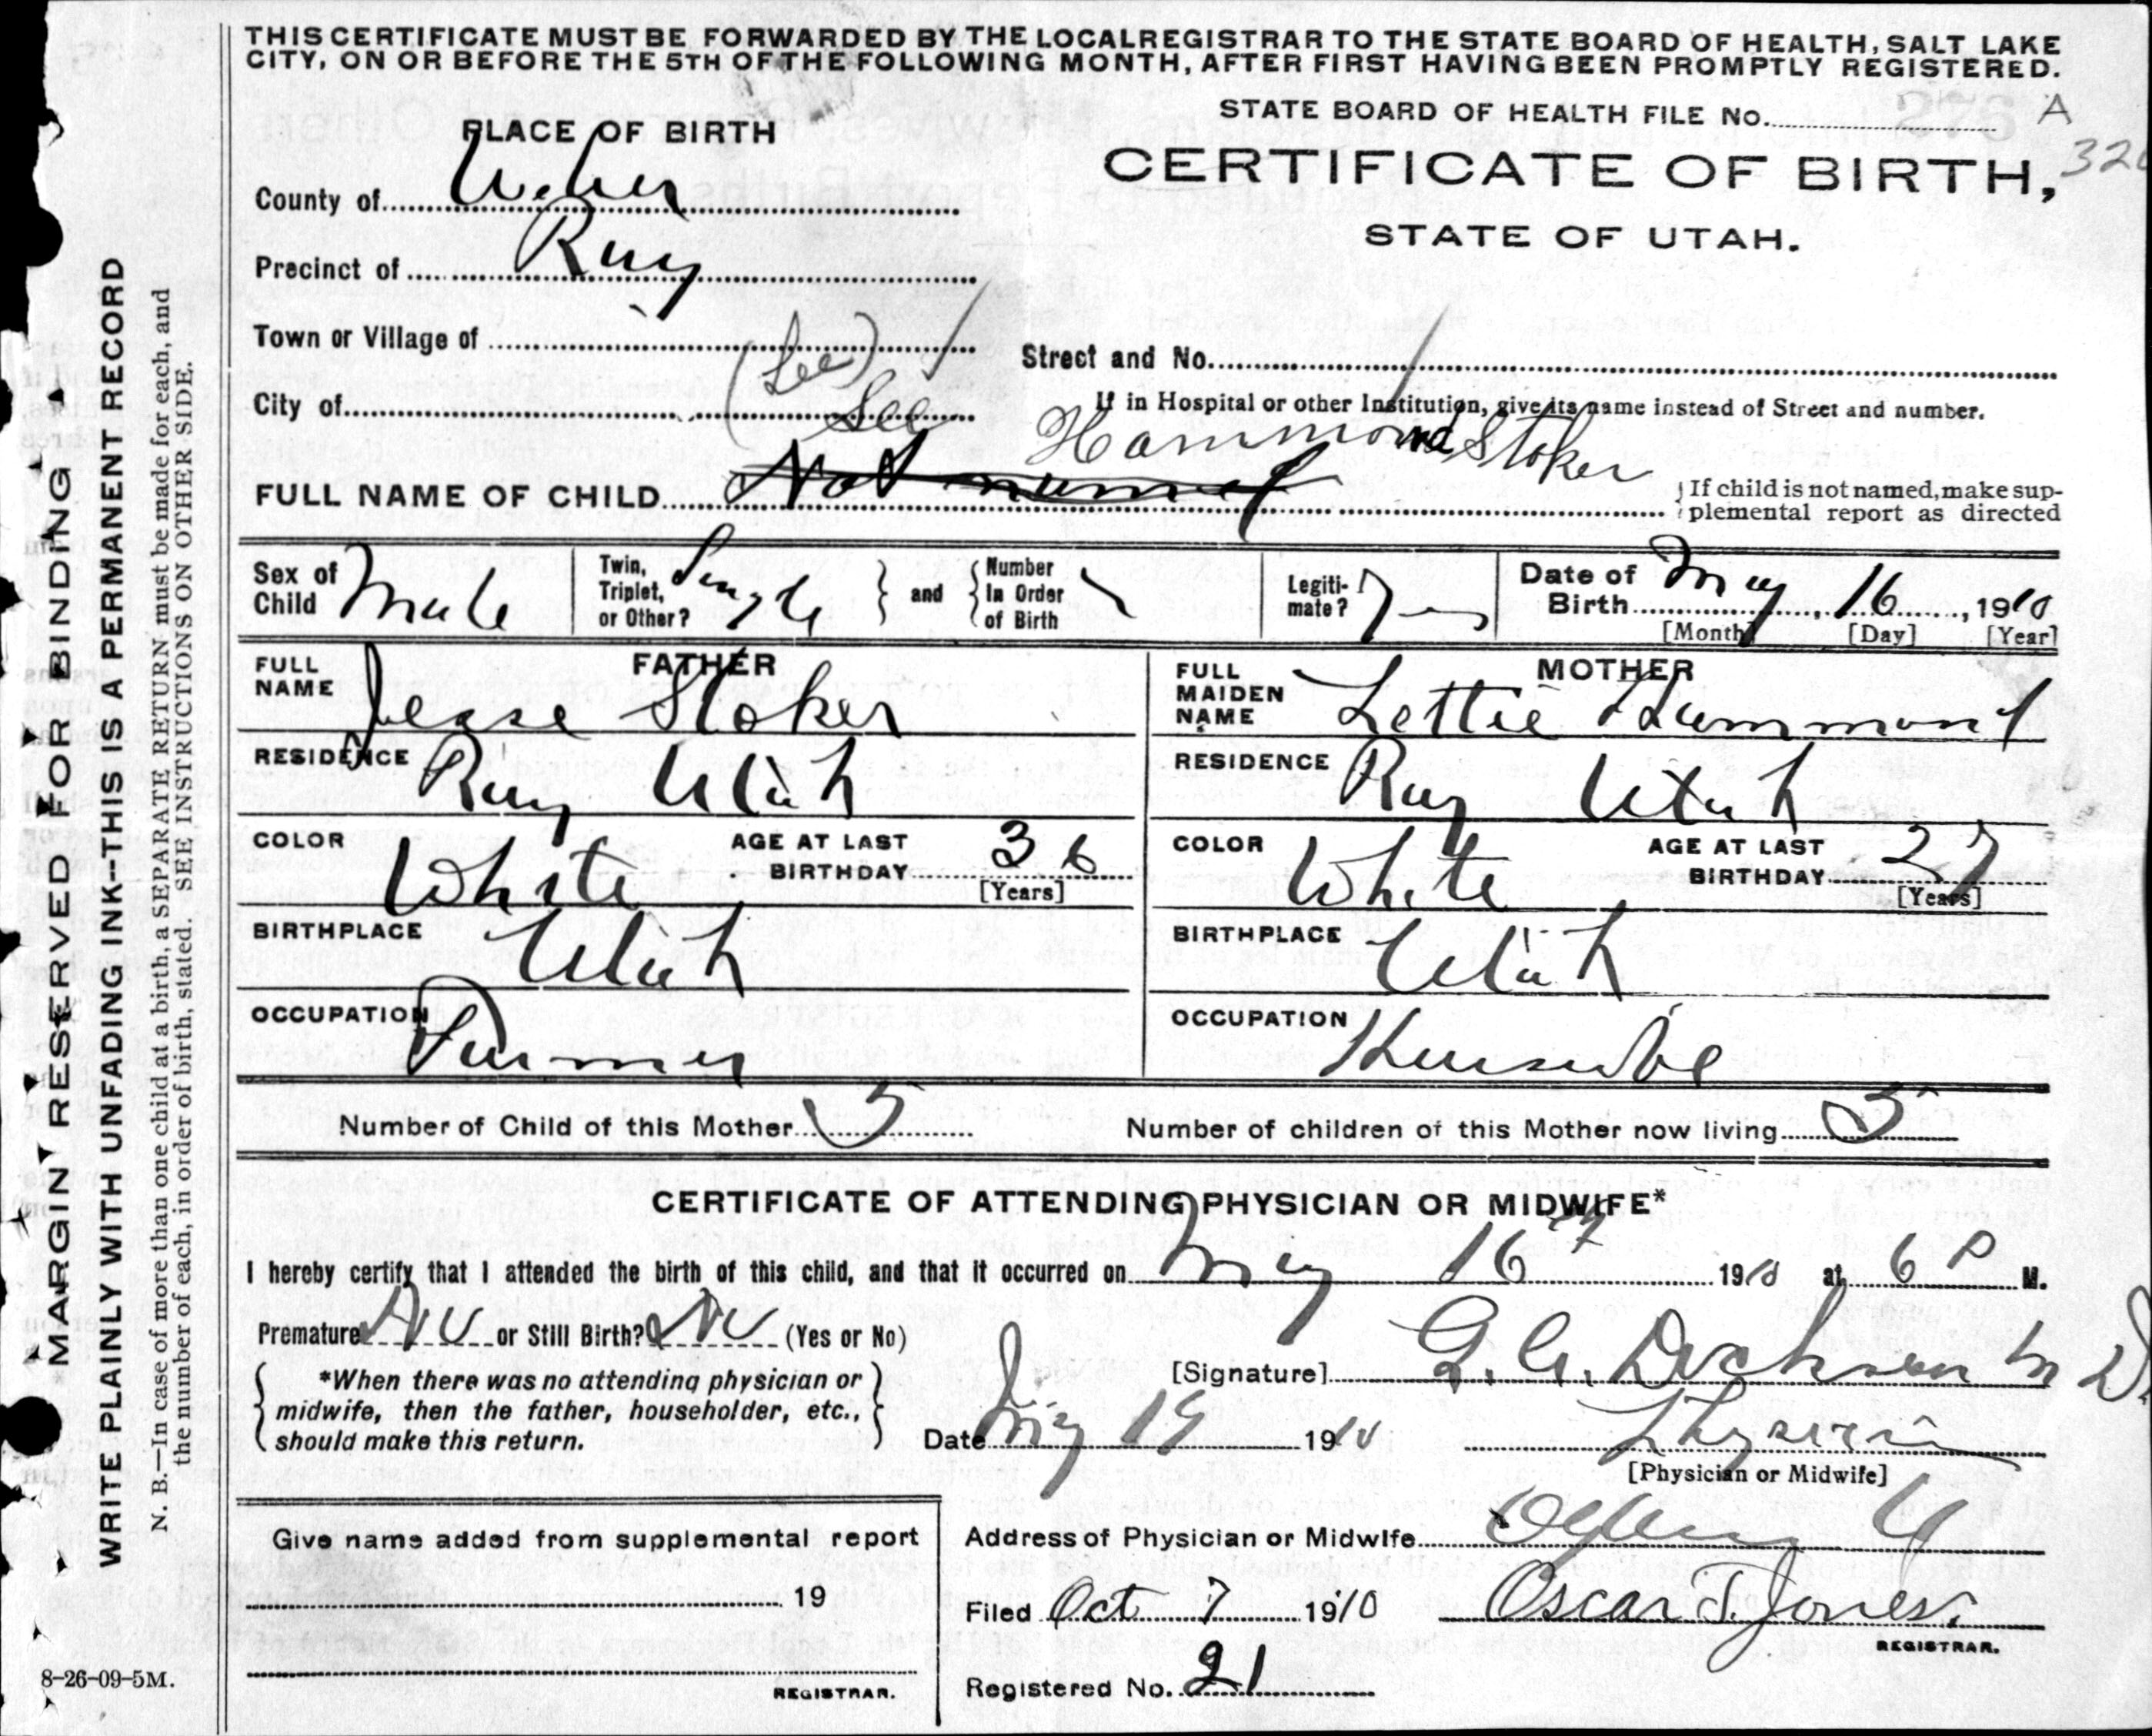 THIS CERTIFICATE MUST BE FORWARDED BY THE LOCAL REGISTRAR TO THE STATE BOARD OF HEALTH, SALT LAKE
CITY, ON OR BEFORE THE 5TH OF THE FOLLOWING MONTH, AFTER FIRST HAVING BEEN PROMPTLY REGISTERED.
STATE BOARD OF HEALTH FILE No. 276 A
PLACE OF BIRTH
CERTIFICATE OF BIRTH,
STATE OF UTAH.
County of Weber
Precinct of Roy
Town or Village of
Street and No.
(Lee)
City of Lee
If in Hospital or other Institution, give its name instead of Street and number.
Hammond Stoker
FULL NAME OF CHILD Not named
If child is not named, make sup-
plemental report as directed
Sex of Child Male
Twin, Triplet, or Other? Single and Number In Order of Birth
Legiti-mate? Yes
Date of Birth May, 16, 1910
[Month] [Day] [Year]
FATHER
FULL NAME Jesse Stoker
RESIDENCE Roy Utah
COLOR White AGE AT LAST BIRTHDAY 36
[Years]
BIRTHPLACE Utah
OCCUPATION Farmer
MOTHER
FULL MAIDEN NAME Lettie Hammond
RESIDENCE Roy Utah
COLOR White AGE AT LAST BIRTHDAY 27
[Years]
BIRTHPLACE Utah
OCCUPATION Housewife
Number of Child of this Mother 5
Number of children of this Mother now living 5
CERTIFICATE OF ATTENDING PHYSICIAN OR MIDWIFE*
I hereby certify that I attended the birth of this child, and that it occurred on May 16th 1910 at 6 P M.
Premature No or Still Birth? No (Yes or No)
*When there was no attending physician or
midwife, then the father, householder, etc.,
should make this return.
[Signature] G. A. Dickson M D.
Date May 19 1910 Physician
[Physician or Midwife]
Address of Physician or Midwife Ogden U
Give name added from supplemental report
19
REGISTRAR.
Filed Oct 7 1910 Oscar T. Jones.
REGISTRAR.
Registered No. 21
MARGIN RESERVED FOR BINDING
WRITE PLAINLY WITH UNFADING INK--THIS IS A PERMANENT RECORD
N. B.—In case of more than one child at a birth, a SEPARATE RETURN must be made for each, and
the number of each, in order of birth, stated. SEE INSTRUCTIONS ON OTHER SIDE.
8-26-09-5M.